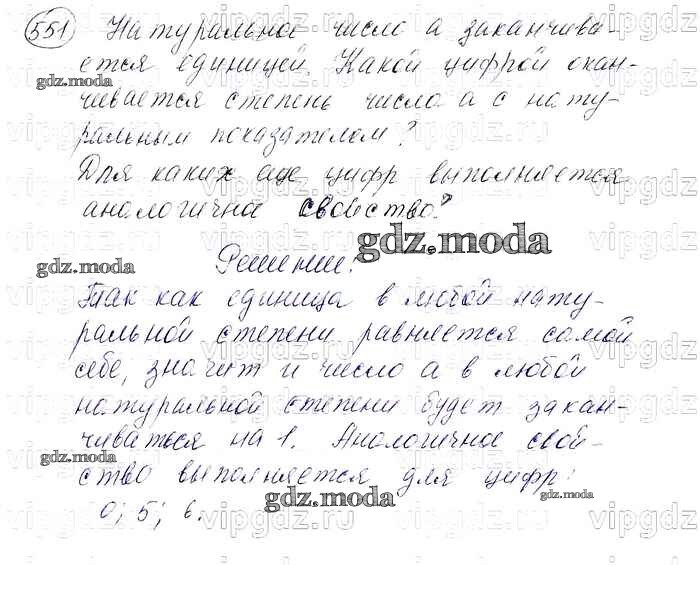 551 Натуральное число а заканчива-
ется единицей. Какой цифрой окан-
чивается степень числа а с нату-
ральным показателем?
Для каких еще цифр выполняется
анологичное свойство?
gdz.moda
Решение:
Так как единица в любой нату-
ральной степени равняется самой
себе, значит и число а в любой
натуральной степени будет закан-
чиваться на 1. Анологичное свой-
ство выполняется для цифр:
0; 5; 6.
gdz.moda
vipgdz.ru